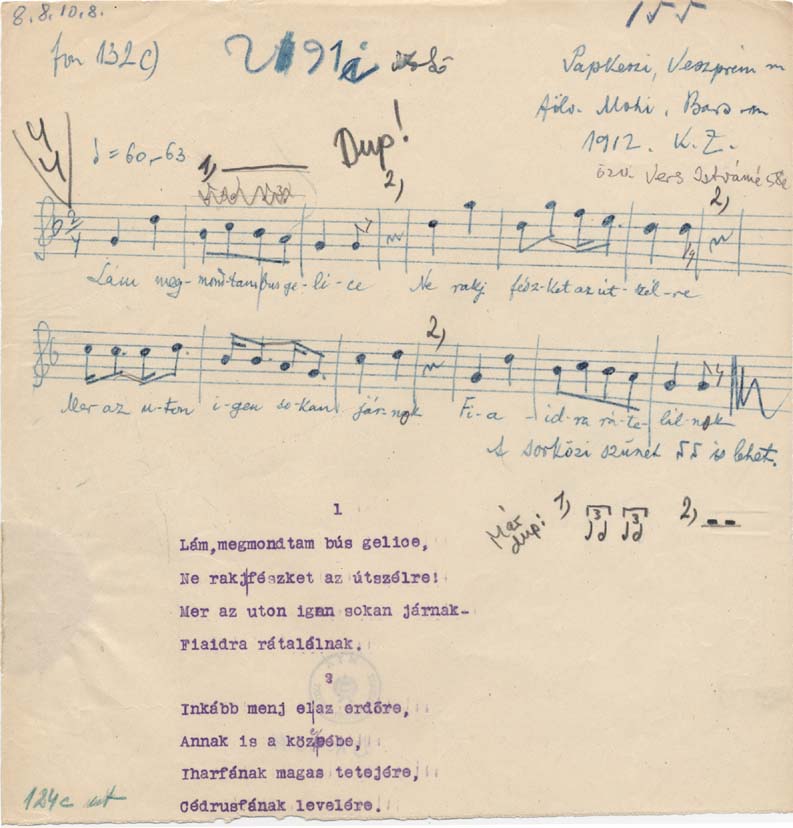 8. 8. 10. 8.
155
fon 132 c)
Papkeszi, Veszprém m
Mohi, Bars-m
1912. K. Z.
özv. Vers Istvánné 58é
♩ = 60-63
1)
Dup!
2)
2)
4
4
2
4
Lám meg-mond-tam bus ge-li-ce Ne rakj fész-ket az út-szél-re
2)
Mer az u-ton i-gen so-kan jár-nak Fi-a-id-ra rá-ta-lál-nak
A sorközi szünet is lehet.
Már dup! 1) 3 3 2)
1
Lám,megmondtam bús gelice,
Ne rakj fészket az útszélre!
Mer az uton igen sokan járnak-
Fiaidra rátalálnak.
2
Inkább menj el az erdőre,
Annak is a közepébe,
Iharfának magas tetejére,
Cédrusfának levelére.
124c